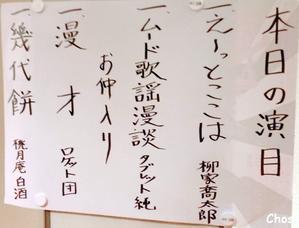 本日の演目
一、えーっとここは 柳家喬太郎
一、ムード歌謡漫談 タブレット純
お仲入り
一、漫才 ロケット団
一、幾代餅 隅田川馬石
Chos